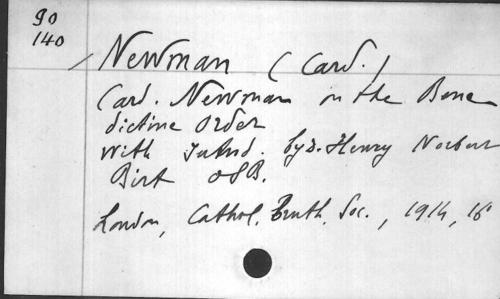 90
140
Newman (Card.)
Card. Newman on the Bene-
dictine Order
With Introd. by D. Henry Norbert
Birt OSB.
London, Cathol. Truth. Soc., 1914, 16°